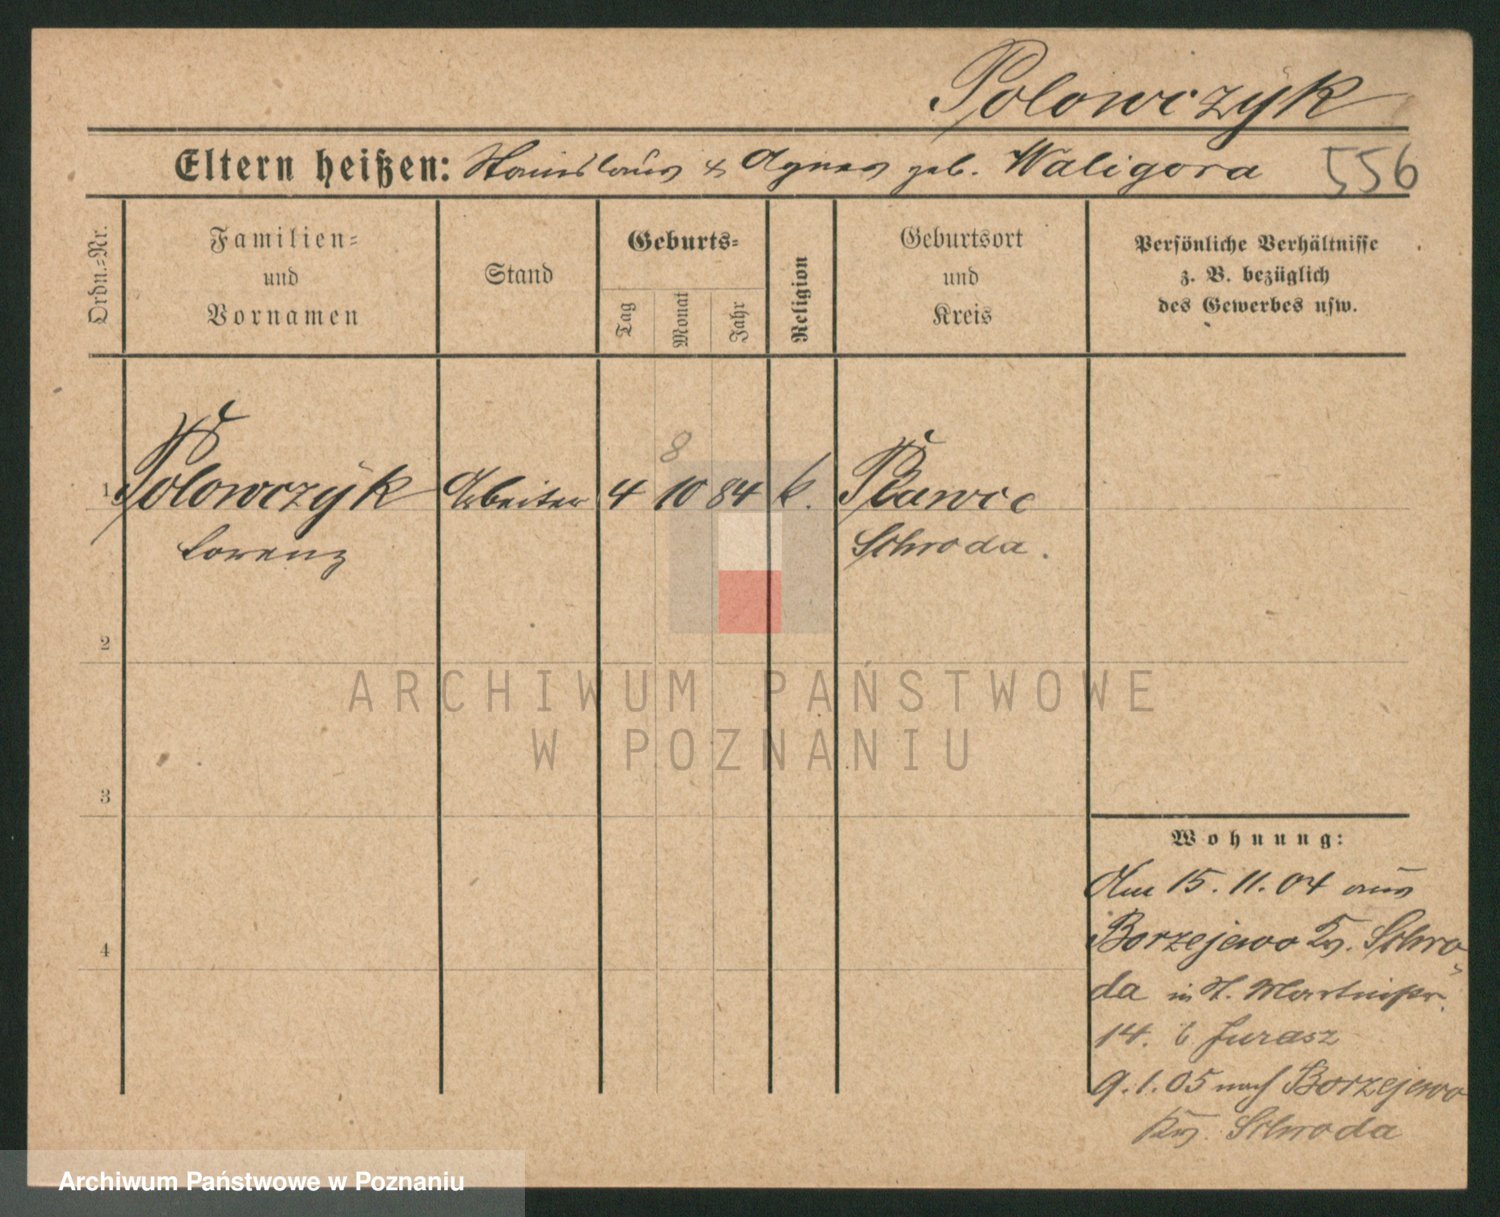 Polowczyk
Eltern heißen: Stanislaus & Agnes geb. Waligora 556
Ordn.=Nr.
Familien=
und
Vornamen
Stand
Geburts=
Tag
Monat
Jahr
Religion
Geburtsort
und
Kreis
Persönliche Verhältnisse
z. B. bezüglich
des Gewerbes usw.
8
1 Polowczyk Arbeiter 4 10 84 k. Pławce
Lorenz Schroda.
2
3
4
Wohnung:
Am 15. 11. 04 aus
Borzejewo Krs. Schro-
da in St. Martinstr.
14. b Jurasz
9. 1. 05 nach Borzejewo
Krs. Schroda
ARCHIWUM PAŃSTWOWE
W POZNANIU
Archiwum Państwowe w Poznaniu